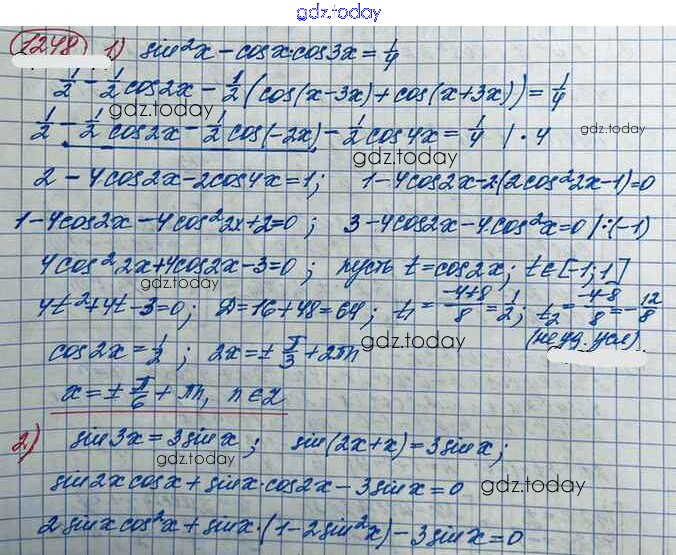 gdz.today
1248 1) sin²x - cosx·cos3x = 1/4
1/2 - 1/2 cos2x - 1/2 (cos(x-3x) + cos(x+3x)) = 1/4
gdz.today
gdz.today
1/2 - 1/2 cos2x - 1/2 cos(-2x) - 1/2 cos4x = 1/4 | · 4
gdz.today
2 - 4cos2x - 2cos4x = 1; 1 - 4cos2x - 2(2cos²2x - 1) = 0
1 - 4cos2x - 4cos²2x + 2 = 0; 3 - 4cos2x - 4·cos²x = 0 | : (-1)
4cos²2x + 4cos2x - 3 = 0; пусть t = cos2x; t ∈ [-1; 1]
gdz.today
4t² + 4t - 3 = 0; D = 16 + 48 = 64; t₁ = (-4+8)/8 = 1/2; t₂ = (-4-8)/8 = -12/8
(не уд. усл)
cos2x = 1/2; 2x = ± π/3 + 2πn
gdz.today
x = ± π/6 + πn, n ∈ Z
2) sin3x = 3sinx; sin(2x+x) = 3sinx;
gdz.today
sin2x cosx + sinx·cos2x - 3sinx = 0
gdz.today
2sinx cos²x + sinx·(1 - 2sin²x) - 3sinx = 0
gdz.today